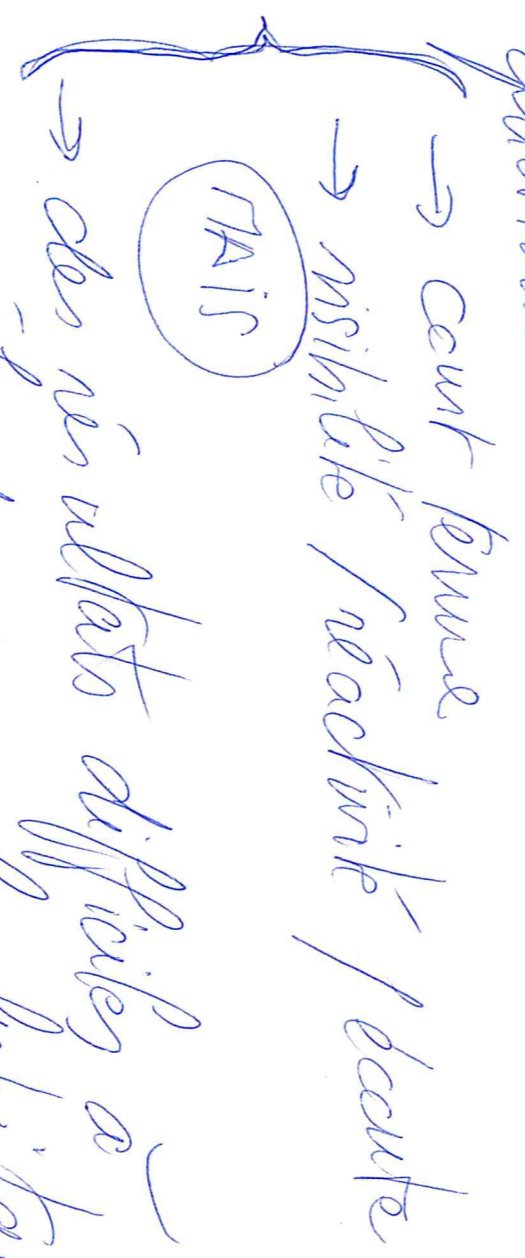 → court terme
→ visibilité / réactivité / écoute
MAIS
→ des résultats difficiles à